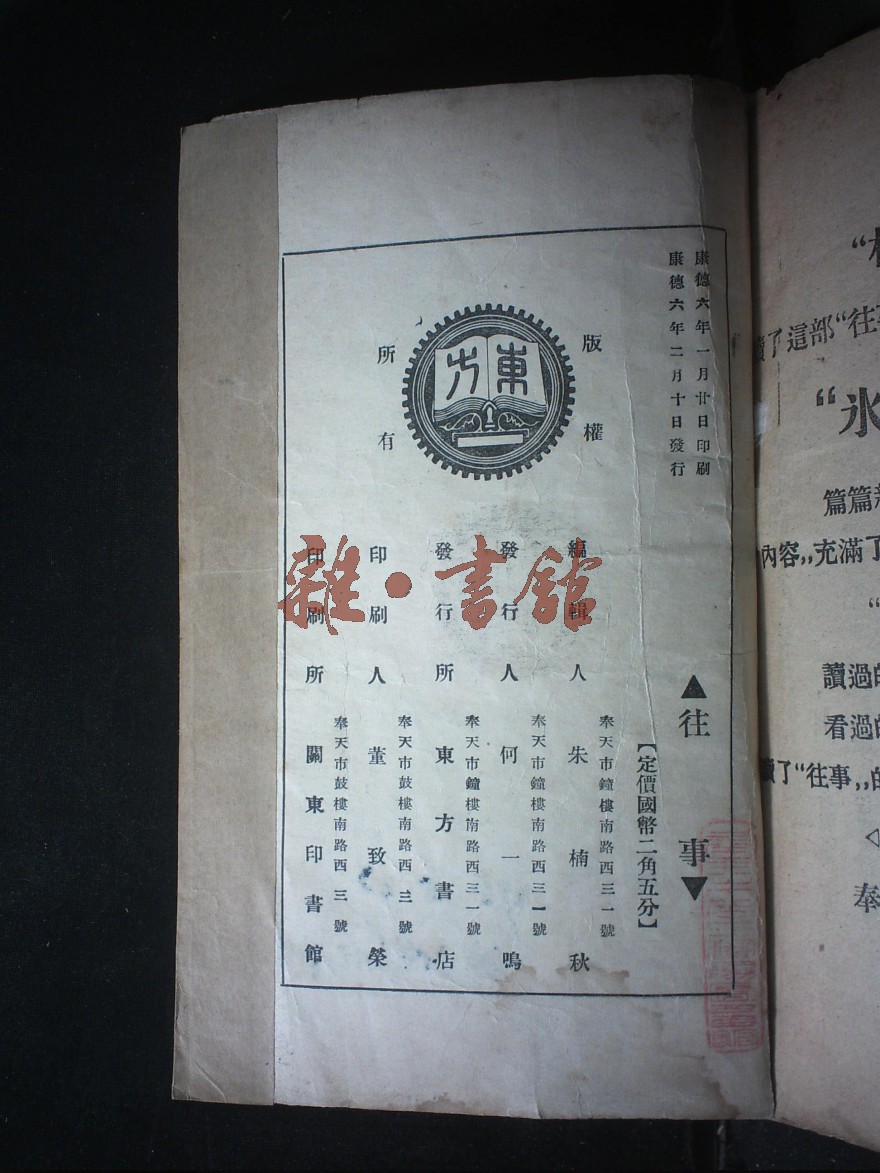 康德六年一月廿日印刷
康德六年二月十日發行
版權
所有
東方
▲往事▼
【定價國幣二角五分】
奉天市鐘樓南路西三一號
編輯人 朱楠秋
奉天市鐘樓南路西三一號
發行人 何一鳴
奉天市鐘樓南路西三一號
發行所 東方書店
奉天市鼓樓南路西三號
印刷人 董致榮
奉天市鼓樓南路西三號
印刷所 關東印書館
雜·書館
讀了這部“往事
“氷
篇篇
內容,,充滿了
“
讀過的
看過的
讀了“往事,,的
奉